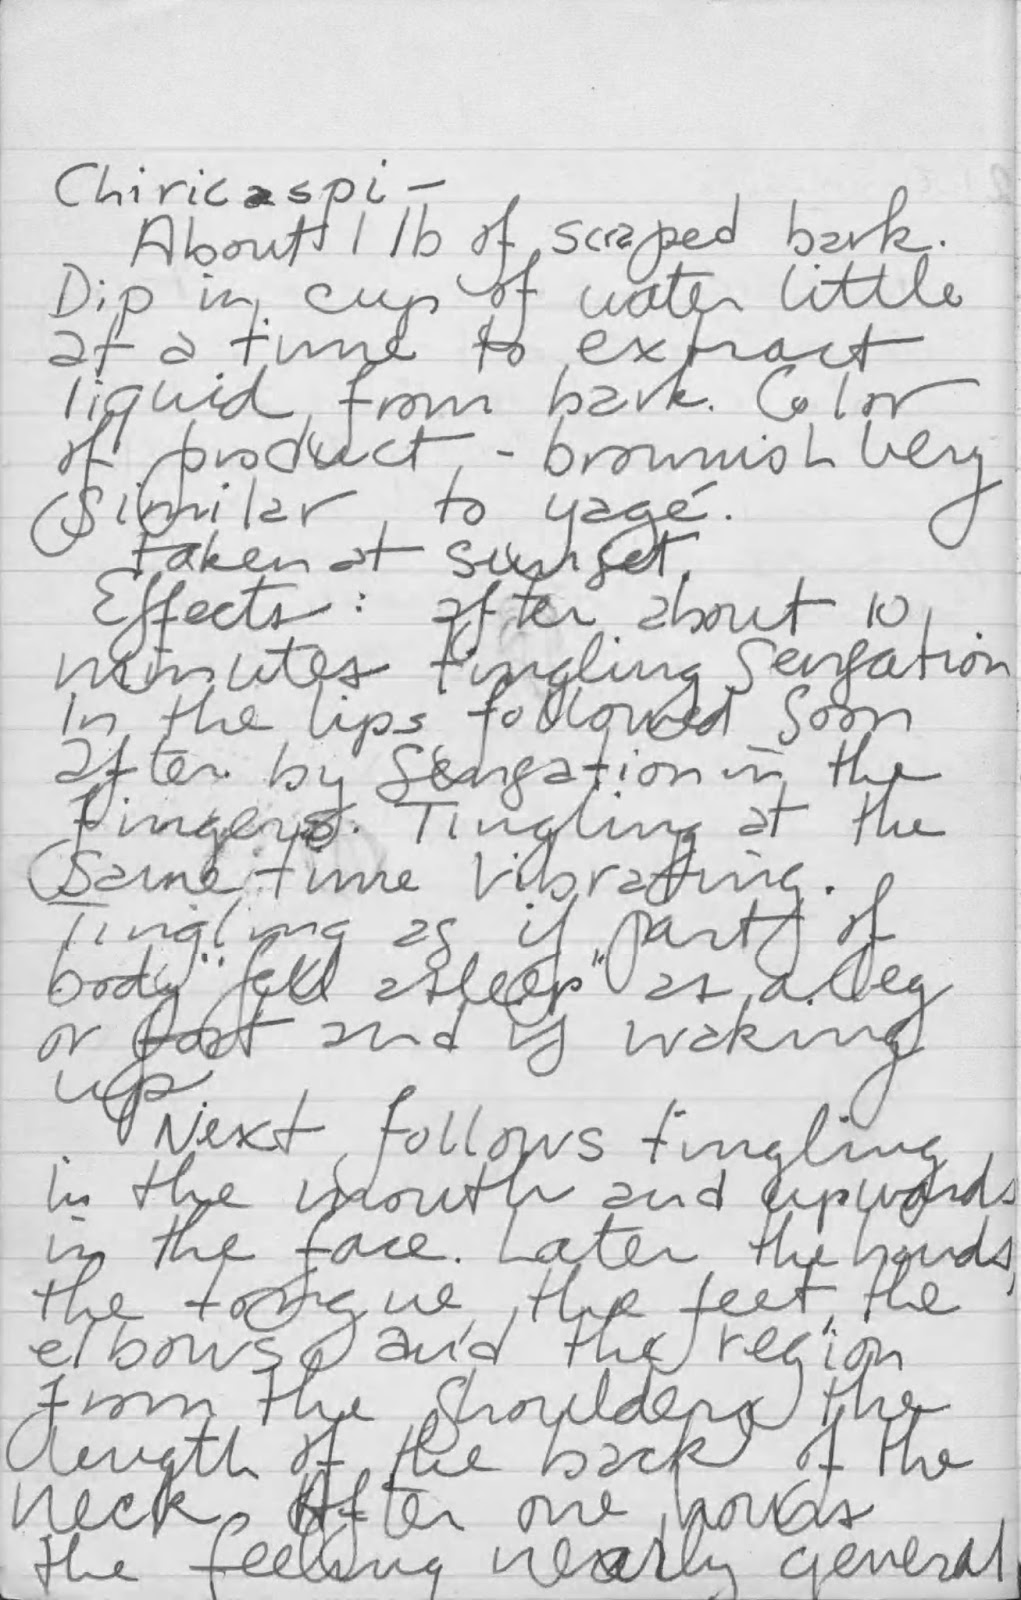 Chiricaspi –
About 1 lb of scraped bark.
Dip in cup of water little
at a time to extract
liquid from bark. Color
of product - brownish very
similar to yagé.
taken at sunset.
Effects: after about 10
minutes tingling sensation
in the lips followed soon
after by sensation in the
fingers. Tingling at the
same time vibrating.
Tingling as if part of
body "fell asleep" as a leg
or foot and is waking
up
Next follows tingling
in the mouth and upwards
in the face. Later the hands,
the tongue, the feet, the
elbows and the region
from the shoulders the
length of the back of the
neck. After one hour
the feeling nearly general